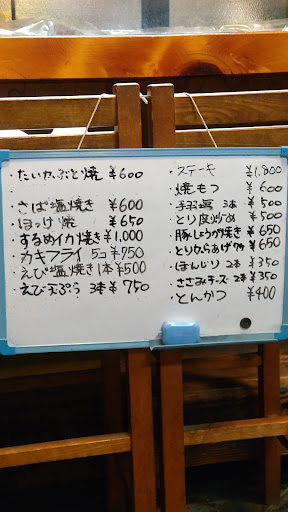 ・たいかぶと焼 ¥600
・さば塩焼き ¥600
・ほっけ焼 ¥650
・するめイカ焼き ¥1,000
・カキフライ 5コ ¥750
・えび塩焼き 1本 ¥500
・えび天ぷら 3本 ¥750
・ステーキ ¥1,800
・焼もつ ¥600
・手羽 3本 ¥500
・とり皮炒め ¥500
・豚しょうが焼き ¥650
・とりからあげ 7ケ ¥650
・ぼんじり 2本 ¥350
・ささみチーズ 2本 ¥350
・とんかつ ¥400